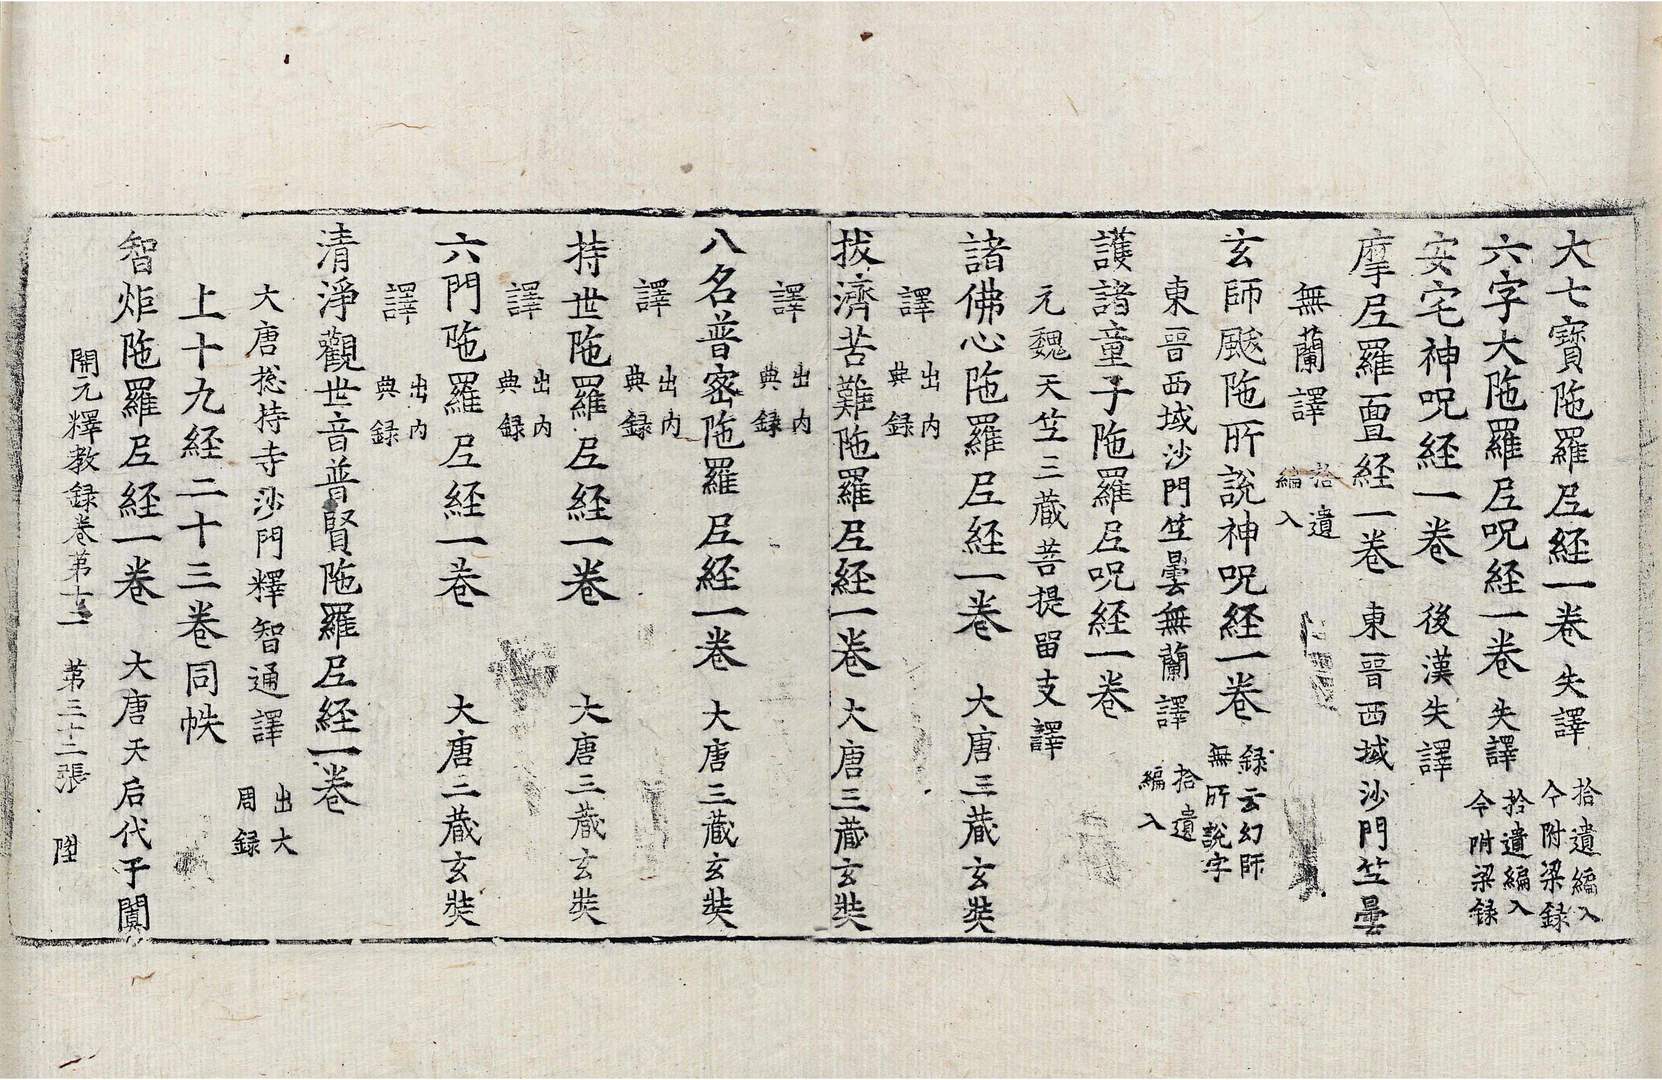 大七寶陁羅尼経一卷 失譯 拾遺編入 今附梁録
六字大陁羅尼呪経一卷 失譯 拾遺編入 今附梁録
安宅神呪経一卷 後漢失譯
摩尼羅亶経一卷 東晉西域沙門竺曇
無蘭譯 拾遺 編入
玄師颰陁所說神呪経一卷 録云幻師 無所說字
東晉西域沙門竺曇無蘭譯 拾遺 編入
護諸童子陁羅尼呪経一卷
元魏天竺三藏菩提留支譯
諸佛心陁羅尼経一卷 大唐三藏玄奘
譯 出内 典録
拔濟苦難陁羅尼経一卷 大唐三藏玄奘
譯 出内 典録
八名普密陁羅尼経一卷 大唐三藏玄奘
譯 出内 典録
持世陁羅尼経一卷 大唐三藏玄奘
譯 出内 典録
六門陁羅尼経一卷 大唐三藏玄奘
譯 出内 典録
清淨觀世音普賢陁羅尼経一卷
大唐捴持寺沙門釋智通譯 出大 周録
上十九経二十三卷同帙
智炬陁羅尼経一卷 大唐天后代于闐
開元釋教録卷苐十二 苐三十二張 陞